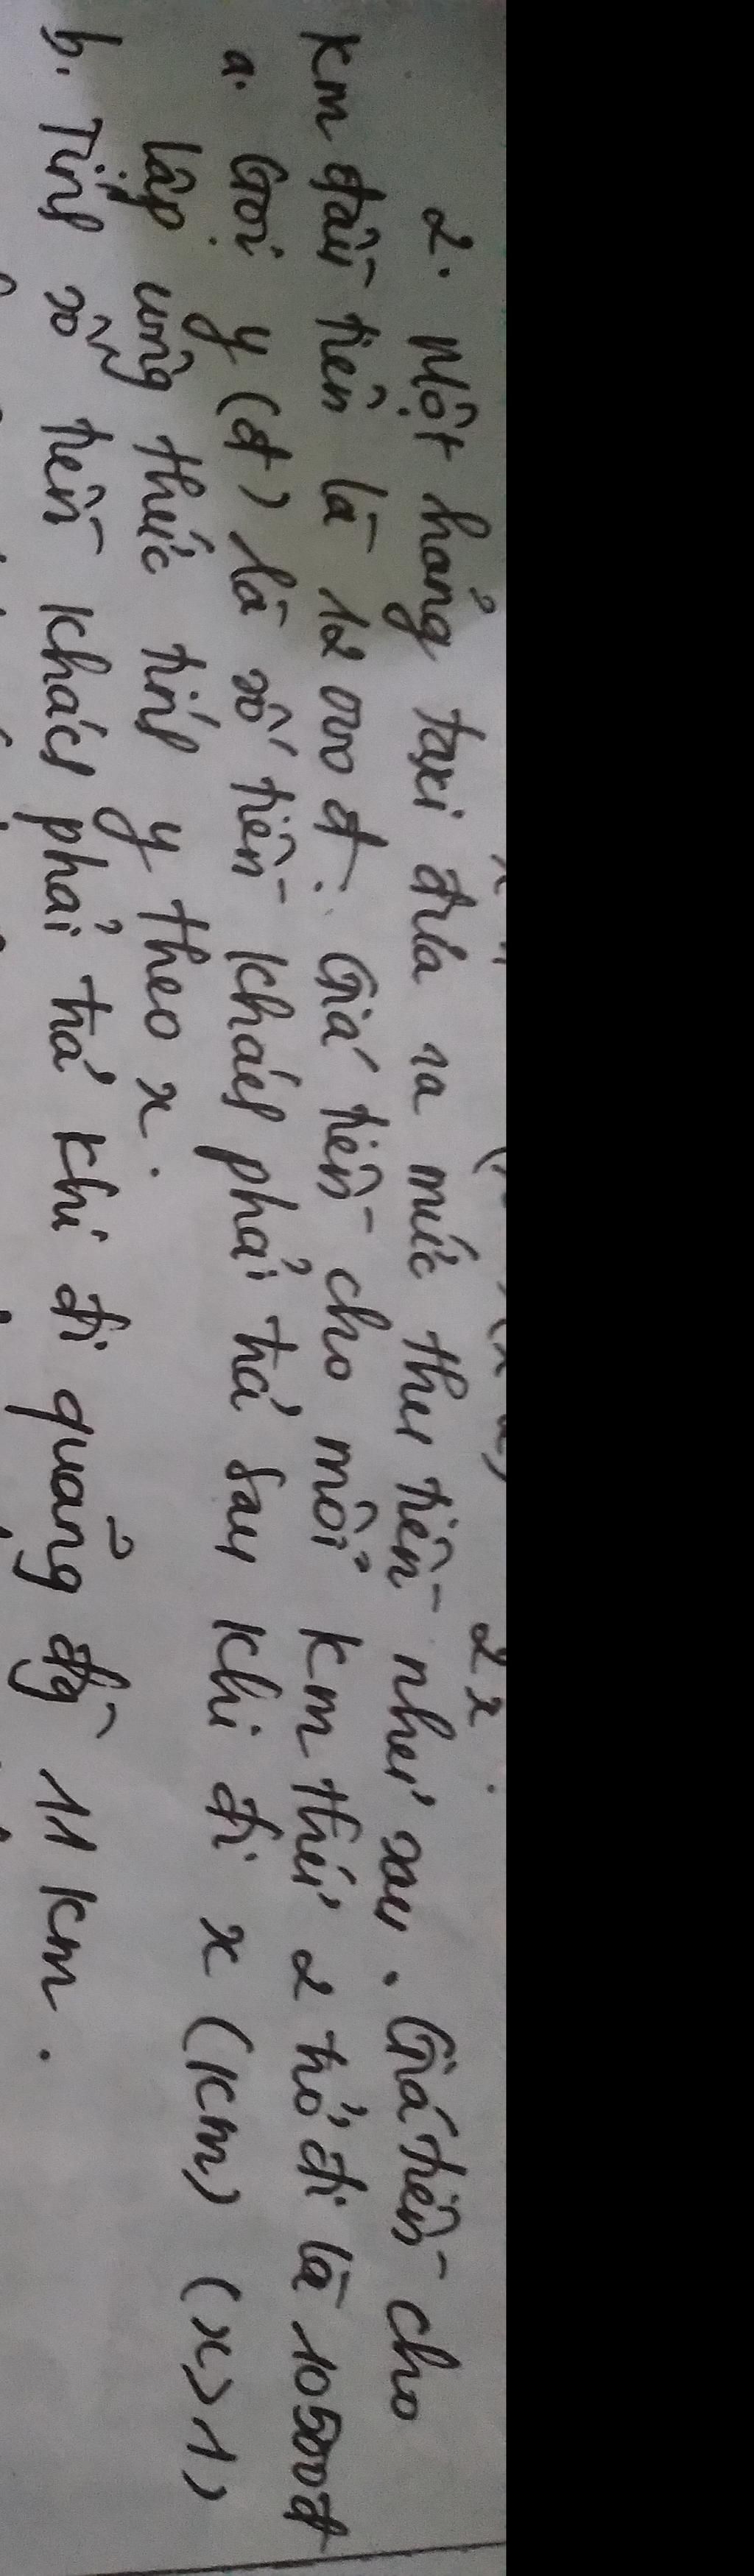 2x
2. Một hảng taxi đưa ra mức thu tiền như sau. Giá tiền cho
km đầu tiên là 12 000 đ. Giá tiền cho mỗi km thứ 2 trở đi là 10500đ
a. Gọi y (đ) là số tiền khách phải trả sau khi đi x (km) (x>1)
lập công thức tính y theo x.
b. Tính số tiền khách phải trả khi đi quảng đg 11 km.